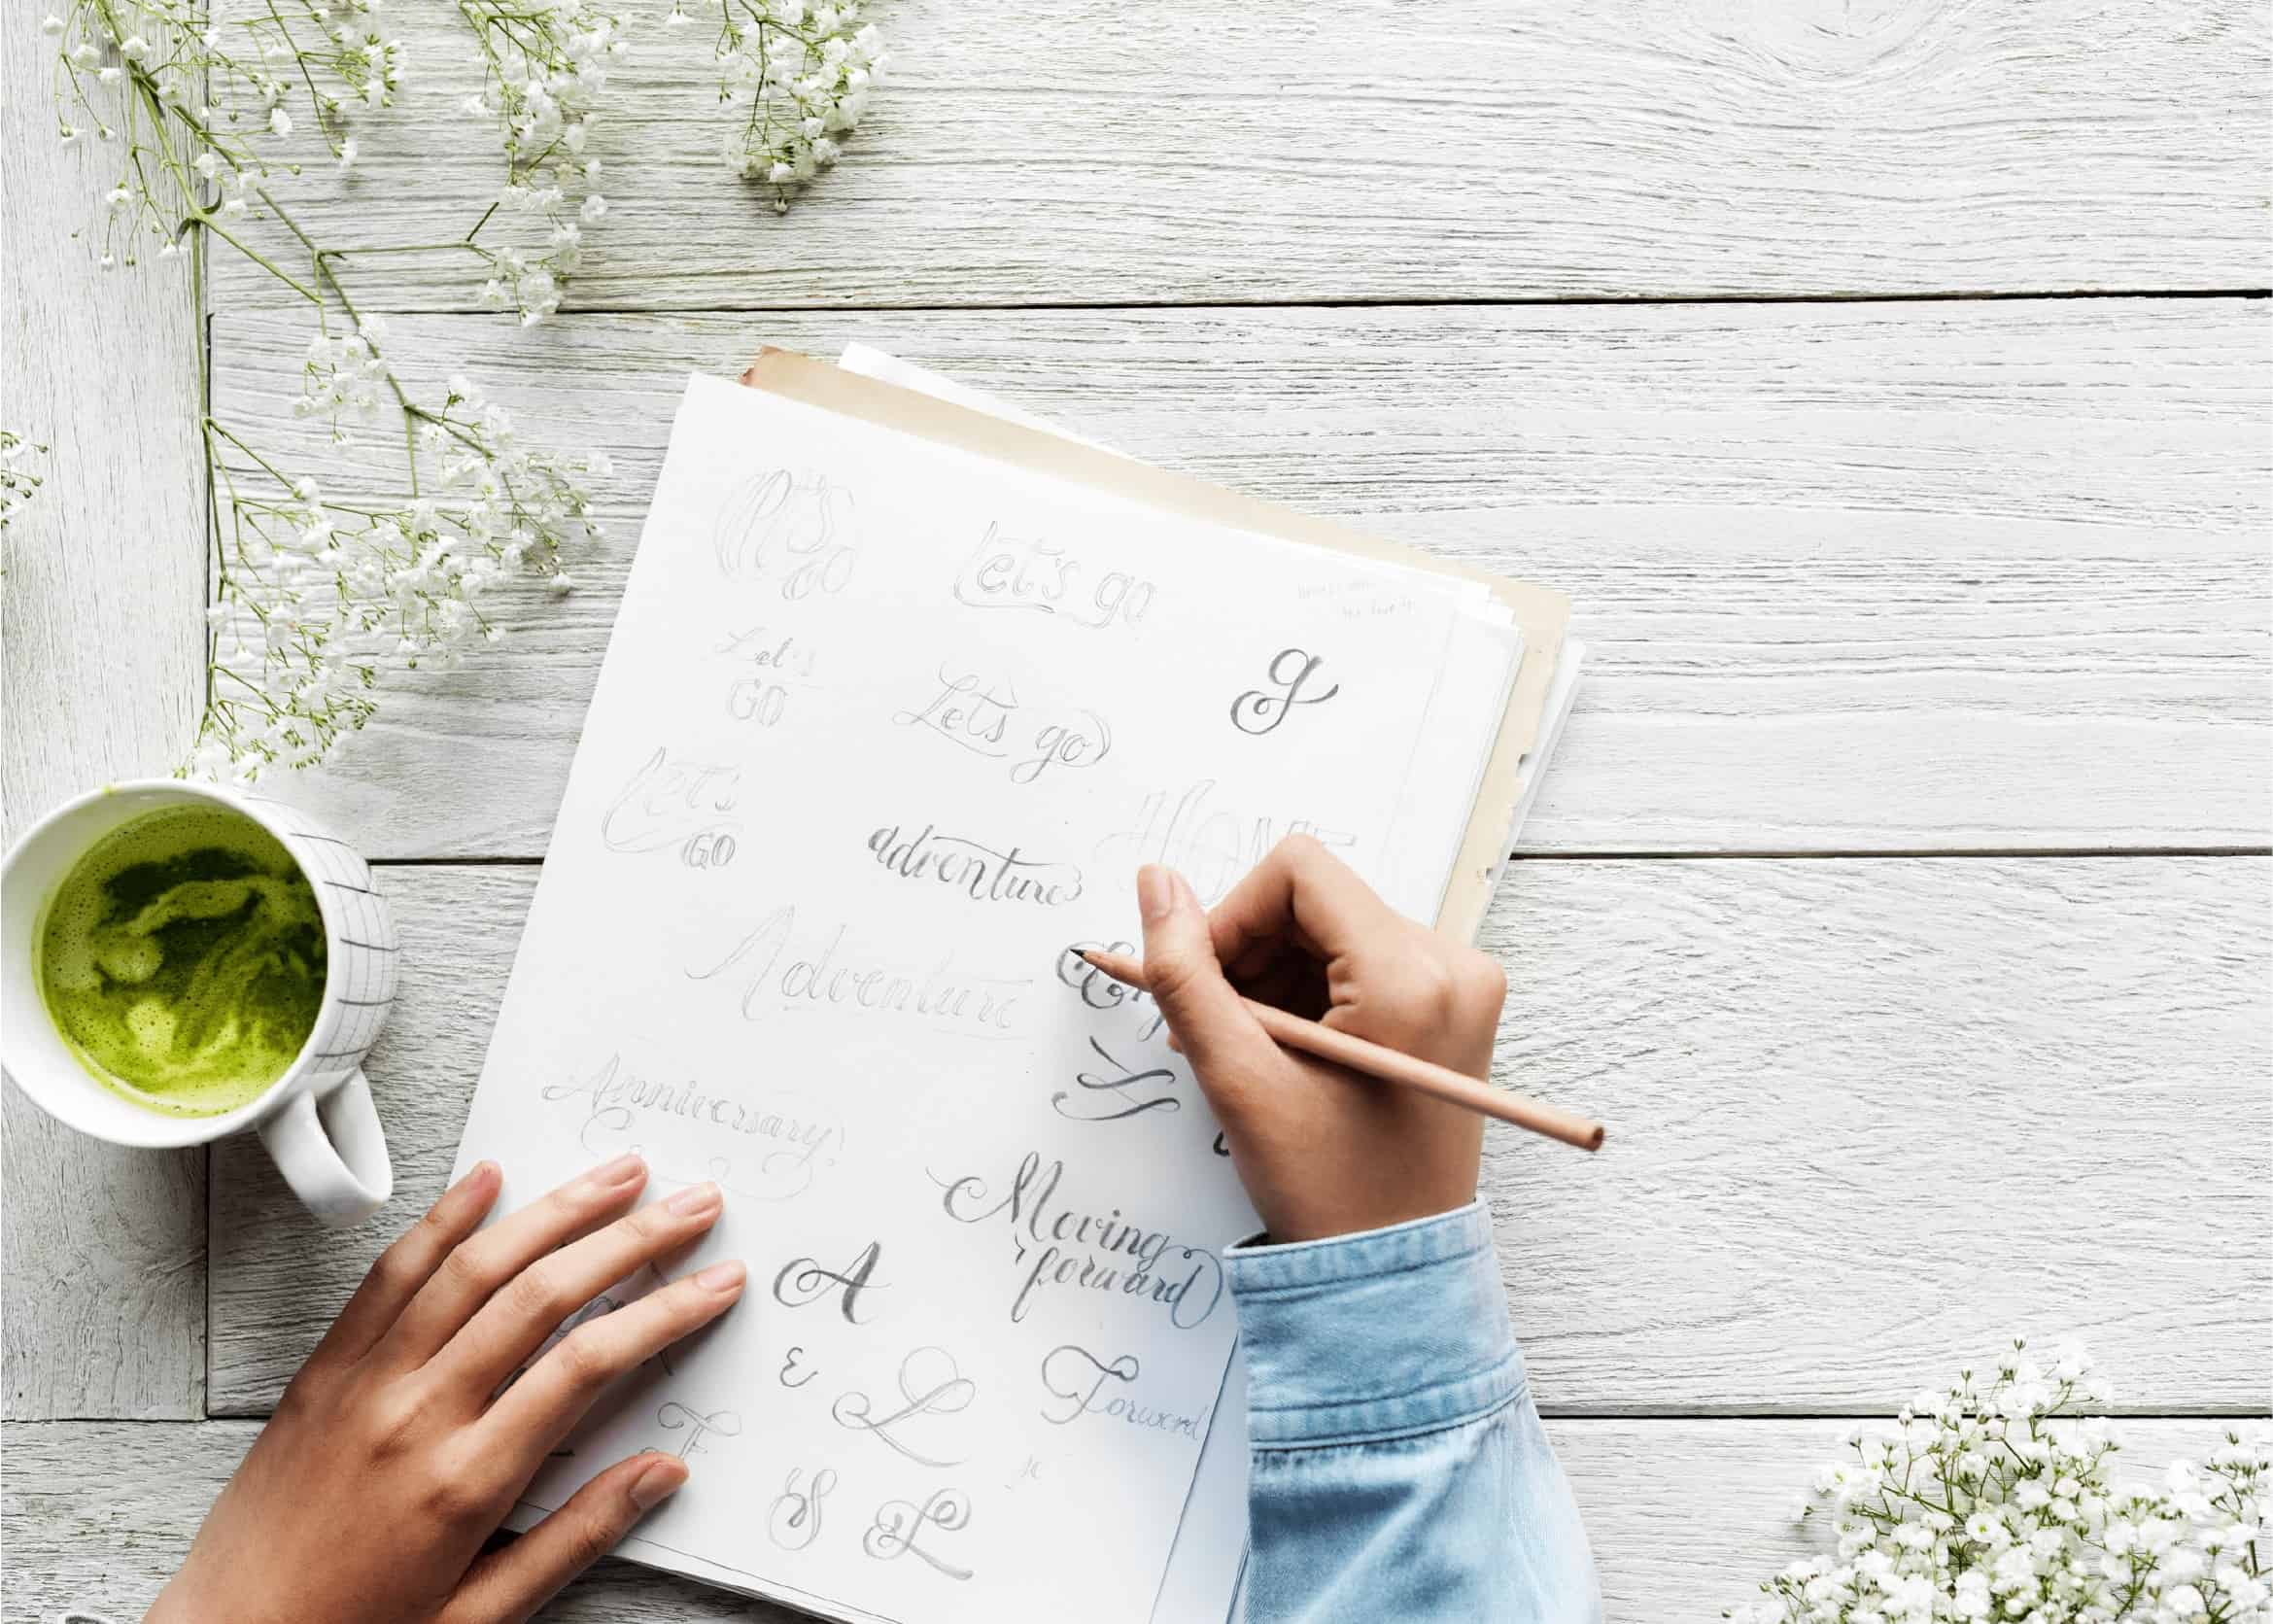 let's go
Let's
GO
Let's go
g
Let's
GO
HOME
adventure
Adventure
Anniversary
Moving
forward
A
&
L
Forward
F
S
L